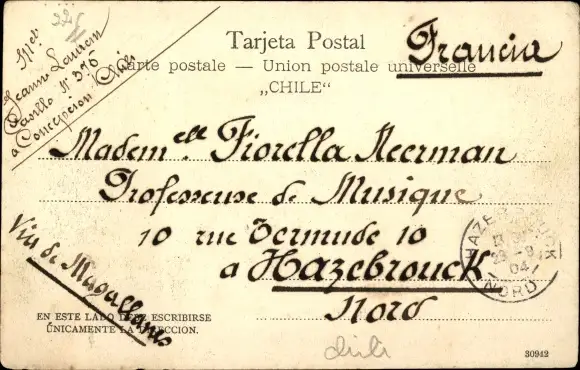 Tarjeta Postal
Francia
Carte postale — Union postale universelle
„CHILE“
Casilla N° 376
a Concepcion Chili
Madem.elle Fiorella Neerman
Professeuse de Musique
10 rue Termude 10
a Hazebrouck
Nord
Via de Magallanes
HAZEBROUCK
04
NORD
EN ESTE LADO DEBE ESCRIBIRSE
ÚNICAMENTE LA DIRECCION.
chili
30942